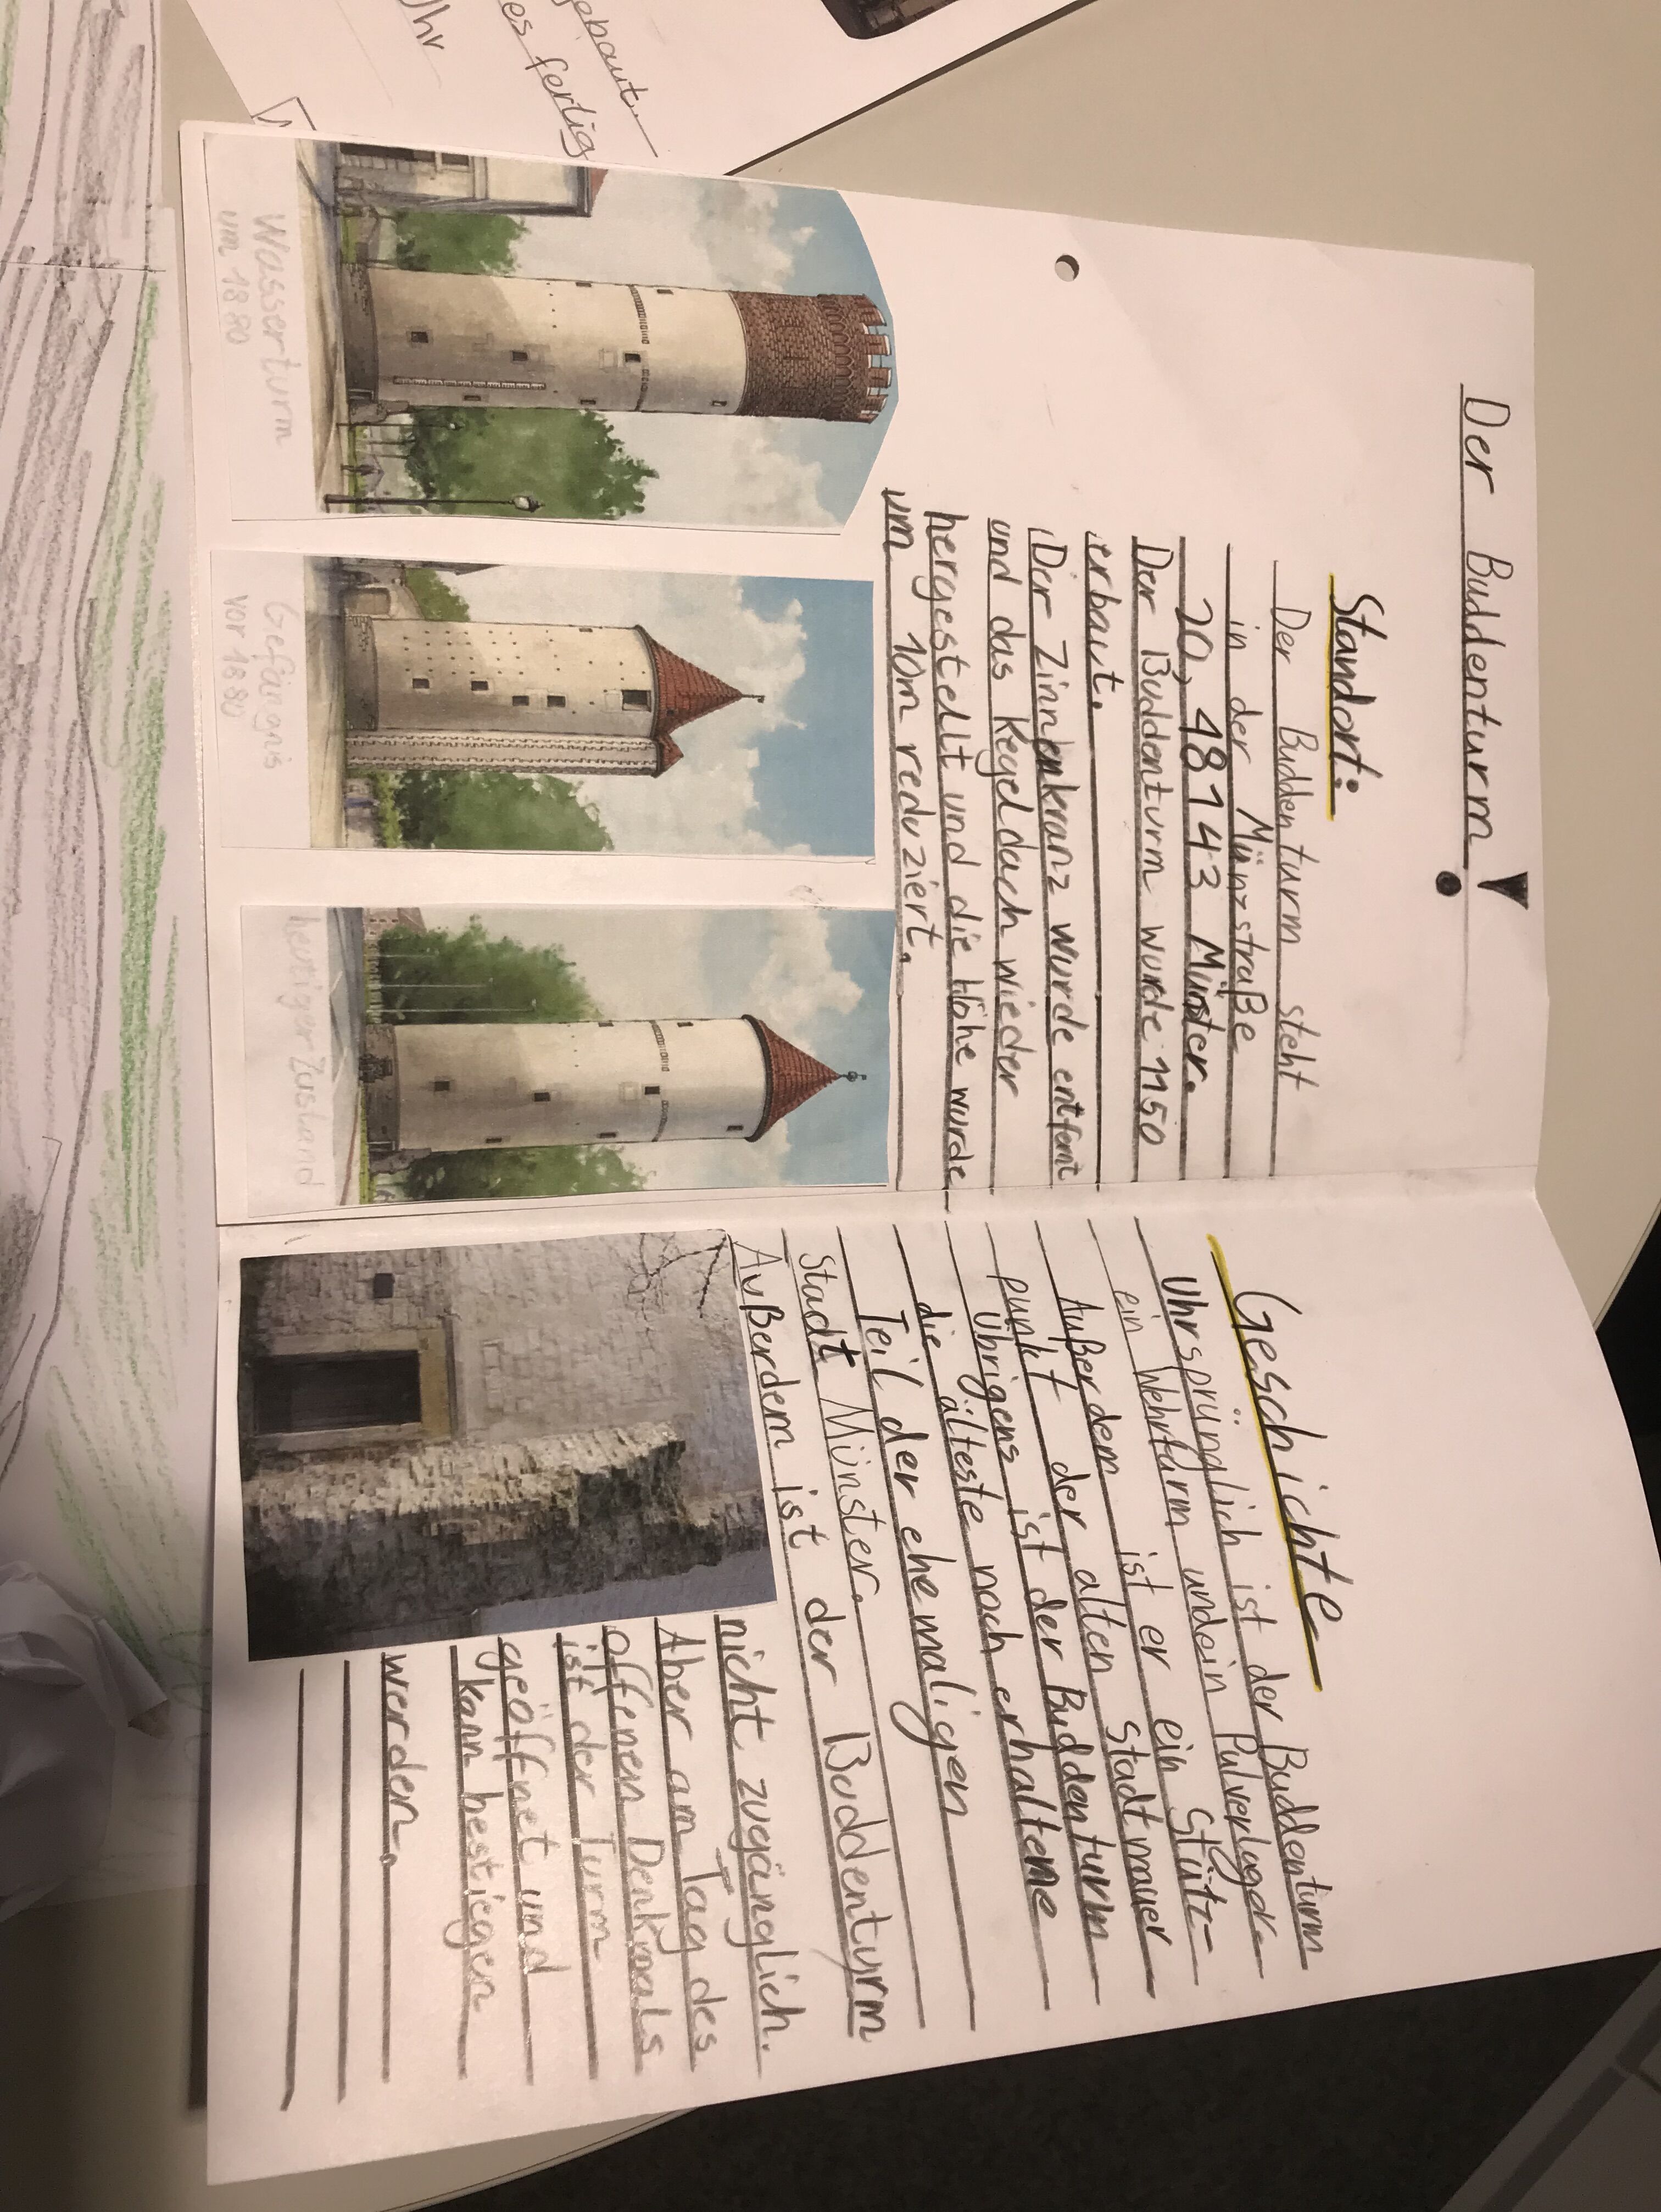 Der Buddenturm!
Standort:
Der Buddenturm steht
in der Münzstraße
20, 48143 Münster.
Der Buddenturm wurde 1150
erbaut.
Der Zinnenkranz wurde entfernt
und das Kegeldach wieder
hergestellt und die Höhe wurde
um 10m reduziert.
Wasserturm
um 1880
Gefängnis
vor 1880
heutiger Zustand
Geschichte
Uhrsprünglich ist der Buddenturm
ein Wehrturm und ein Pulverlager.
Außerdem ist er ein Stütz-
punkt der alten Stadtmauer
Übrigens ist der Buddenturm
die älteste noch erhaltene
Teil der ehemaligen
Stadt Münster.
Außerdem ist der Buddenturm
nicht zugänglich.
Aber am Tag des
offenen Denkmals
ist der Turm
geöffnet und
kann bestiegen
werden.
gebaut.
es fertig
Uhr